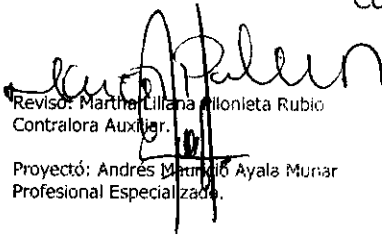 Revisó: Martha Liliana Pilonieta Rubio
Contralora Auxiliar.
Proyectó: Andrés Mauricio Ayala Munar
Profesional Especializado.